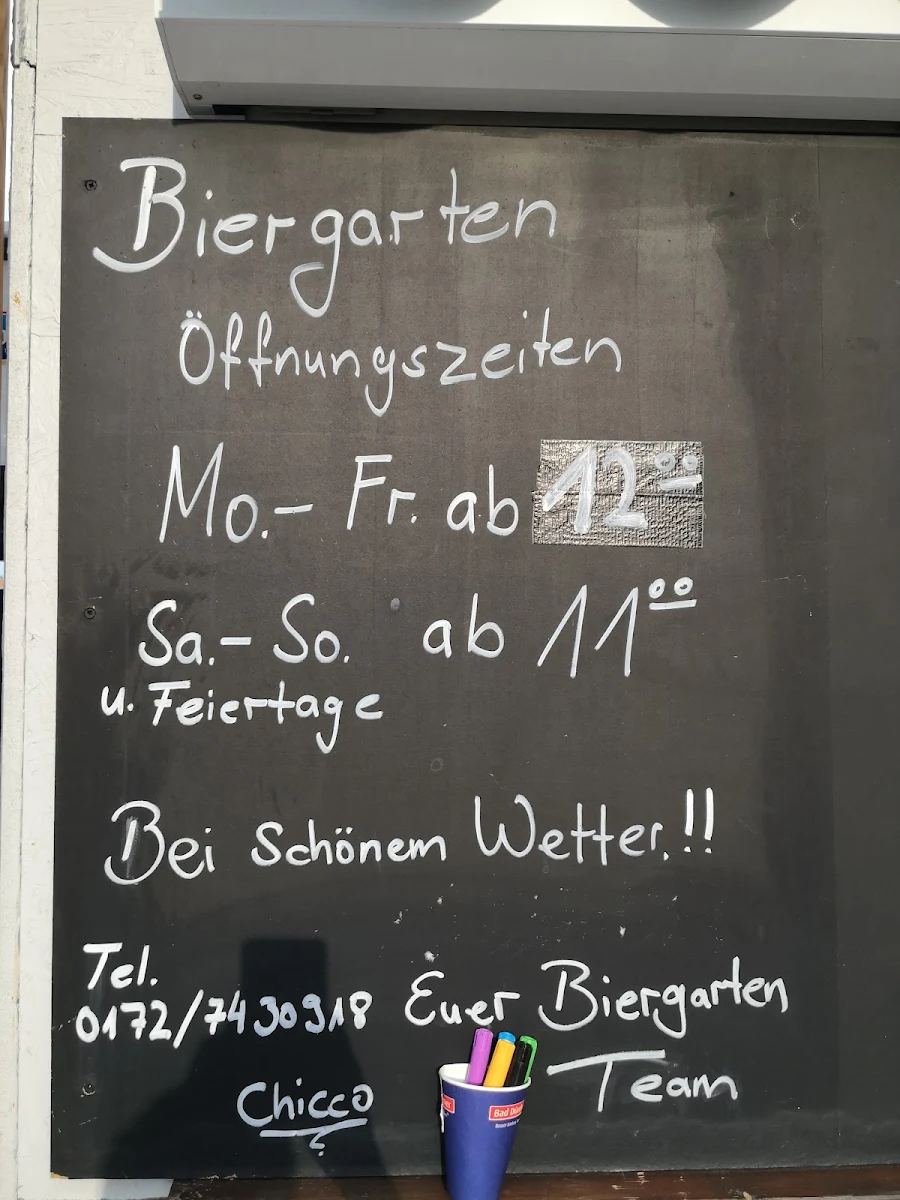 Biergarten
Öffnungszeiten
Mo.- Fr. ab 12⁰⁰
Sa.- So. ab 11⁰⁰
u. Feiertage
Bei schönem Wetter.!!
Tel.
0172/7430918
Euer Biergarten
Team
Chicco
Bad